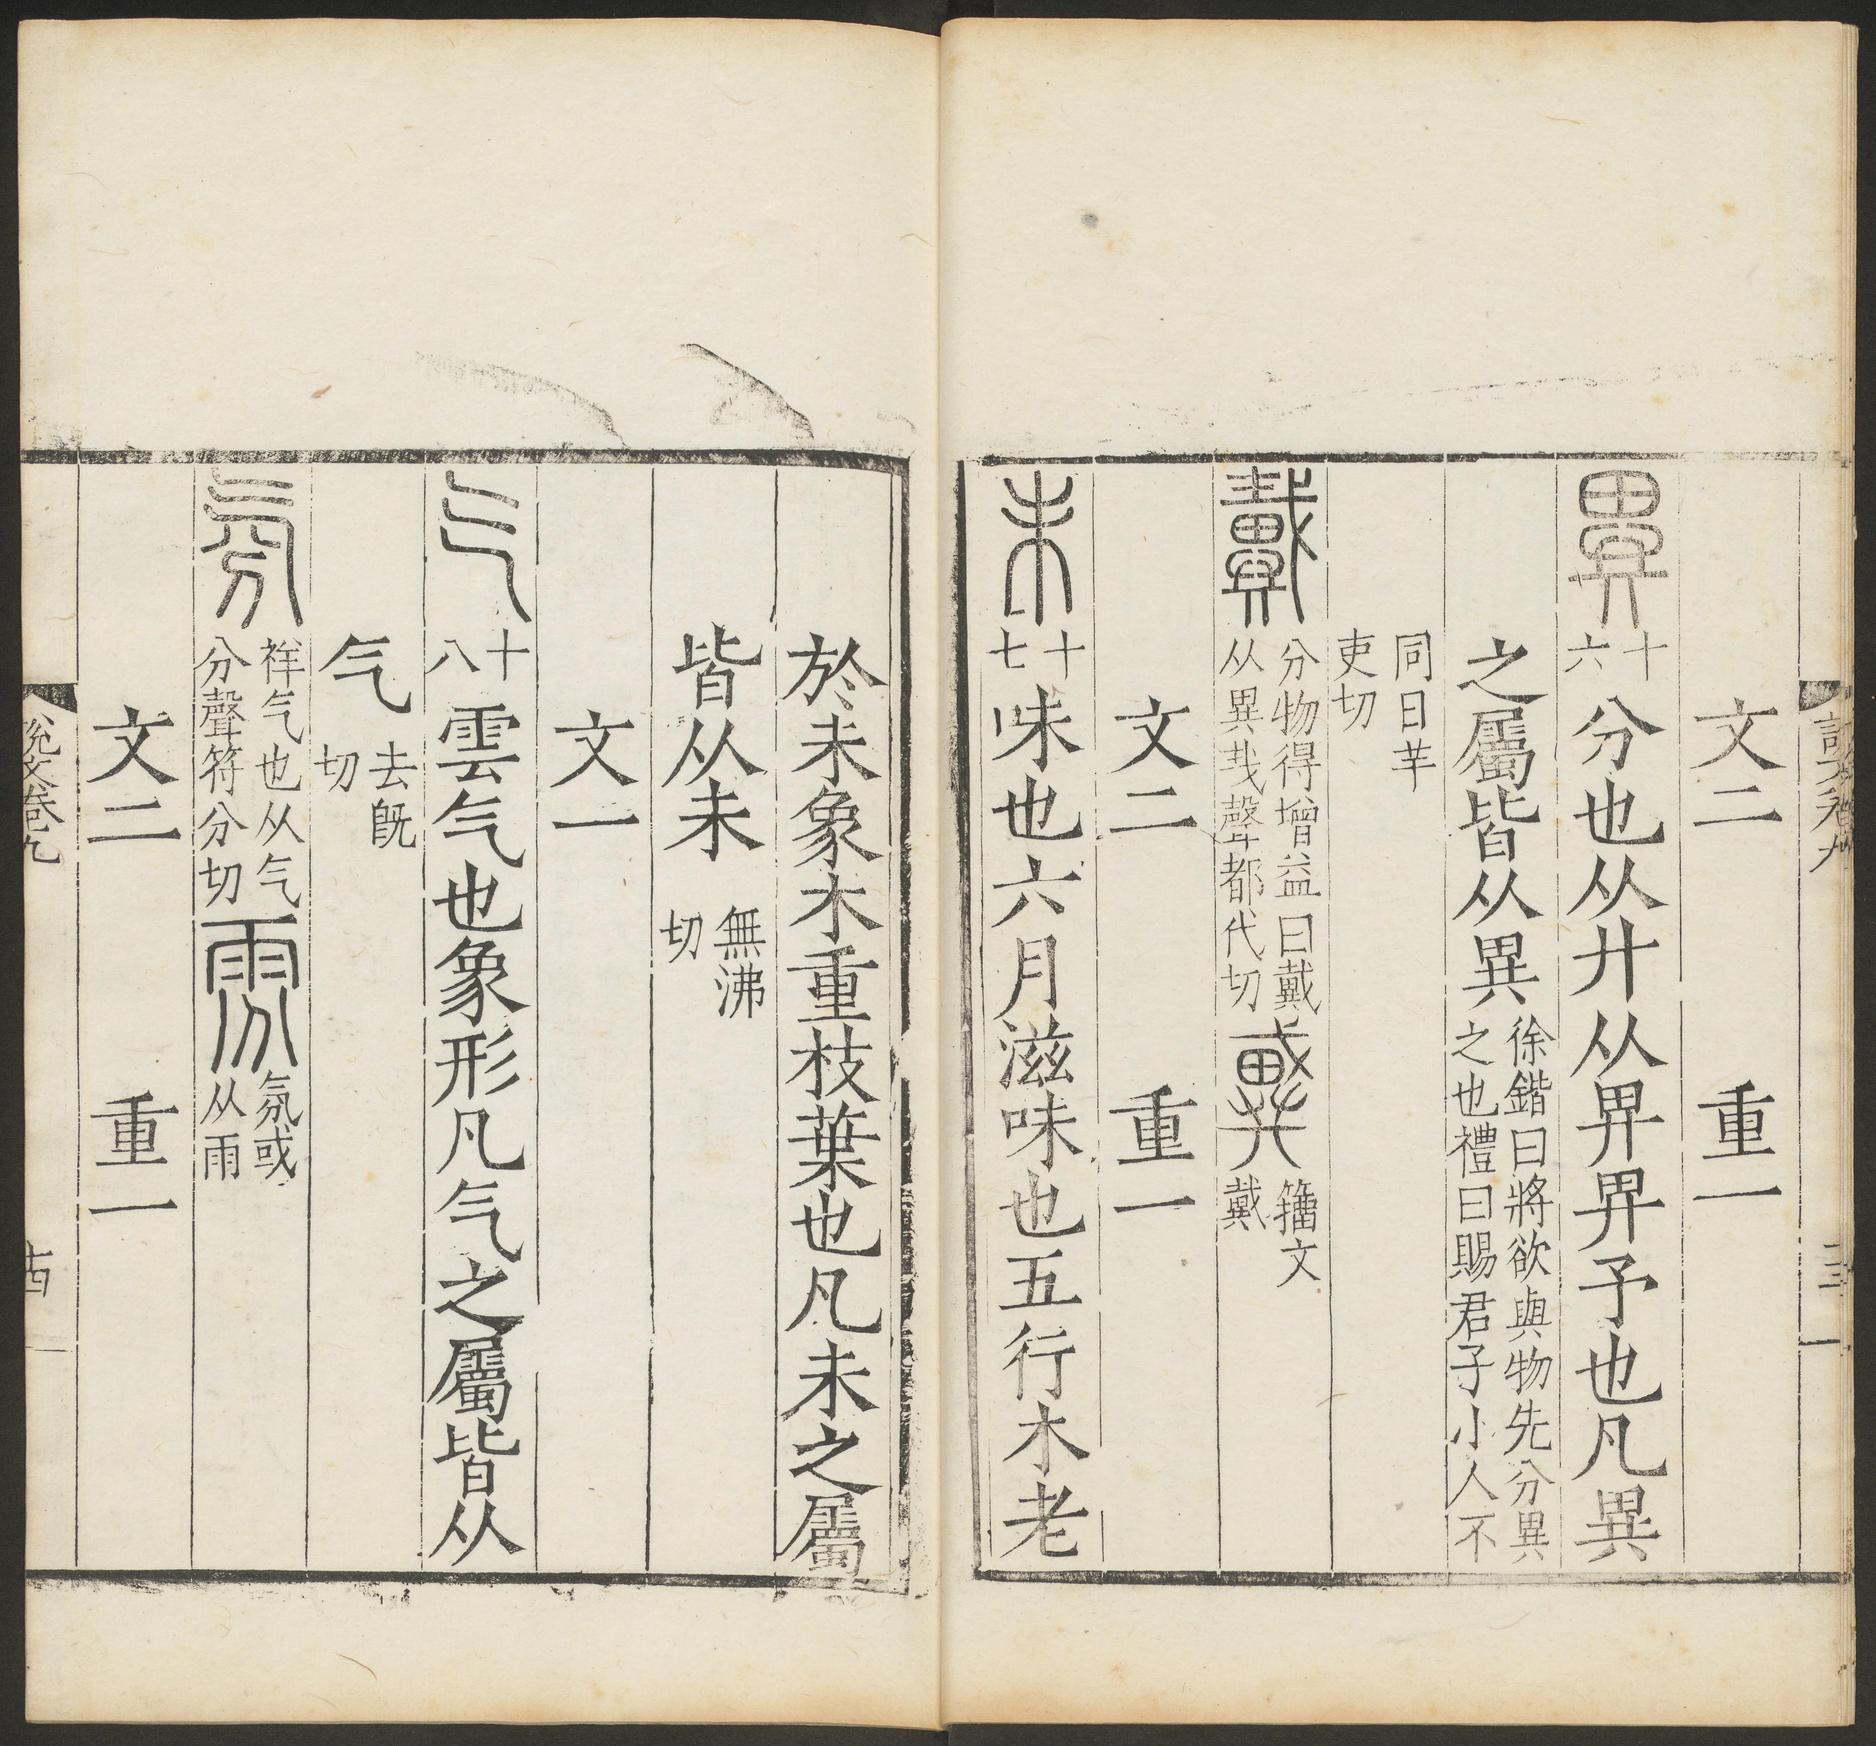 文二 重一
異 十六 分也从廾从畀畀予也凡異
之屬皆从異 徐鍇曰將欲與物先分異之也禮曰賜君子小人不
同日𦍒 吏切
戴 分物得增益曰戴从異𢦏聲都代切 籒文戴
文二 重一
未 十七 味也六月滋味也五行木老
於未象木重枝葉也凡未之屬
皆从未 無沸切
文一
气 十八 雲气也象形凡气之屬皆从
气 去旣切
氛 祥气也从气分聲符分切 雰 氛或从雨
文二 重一
說文卷九